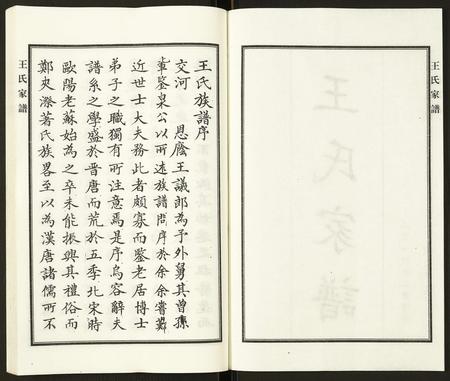 王氏家譜
王氏家譜
王氏族譜序
交河　恩廕王議郎為予外舅其曾孫
鑒泉公以所述族譜問序於余余嘗
近世士大夫務此者頗寡而鑒老居博士
弟子之職獨有所注意焉是序烏容辭夫
譜系之學盛於晉唐而荒於五季北宋時
歐陽老蘇始為之卒未能振興其禮俗而
鄭夾漈著氏族畧至以為漢唐諸儒所不
王氏家譜